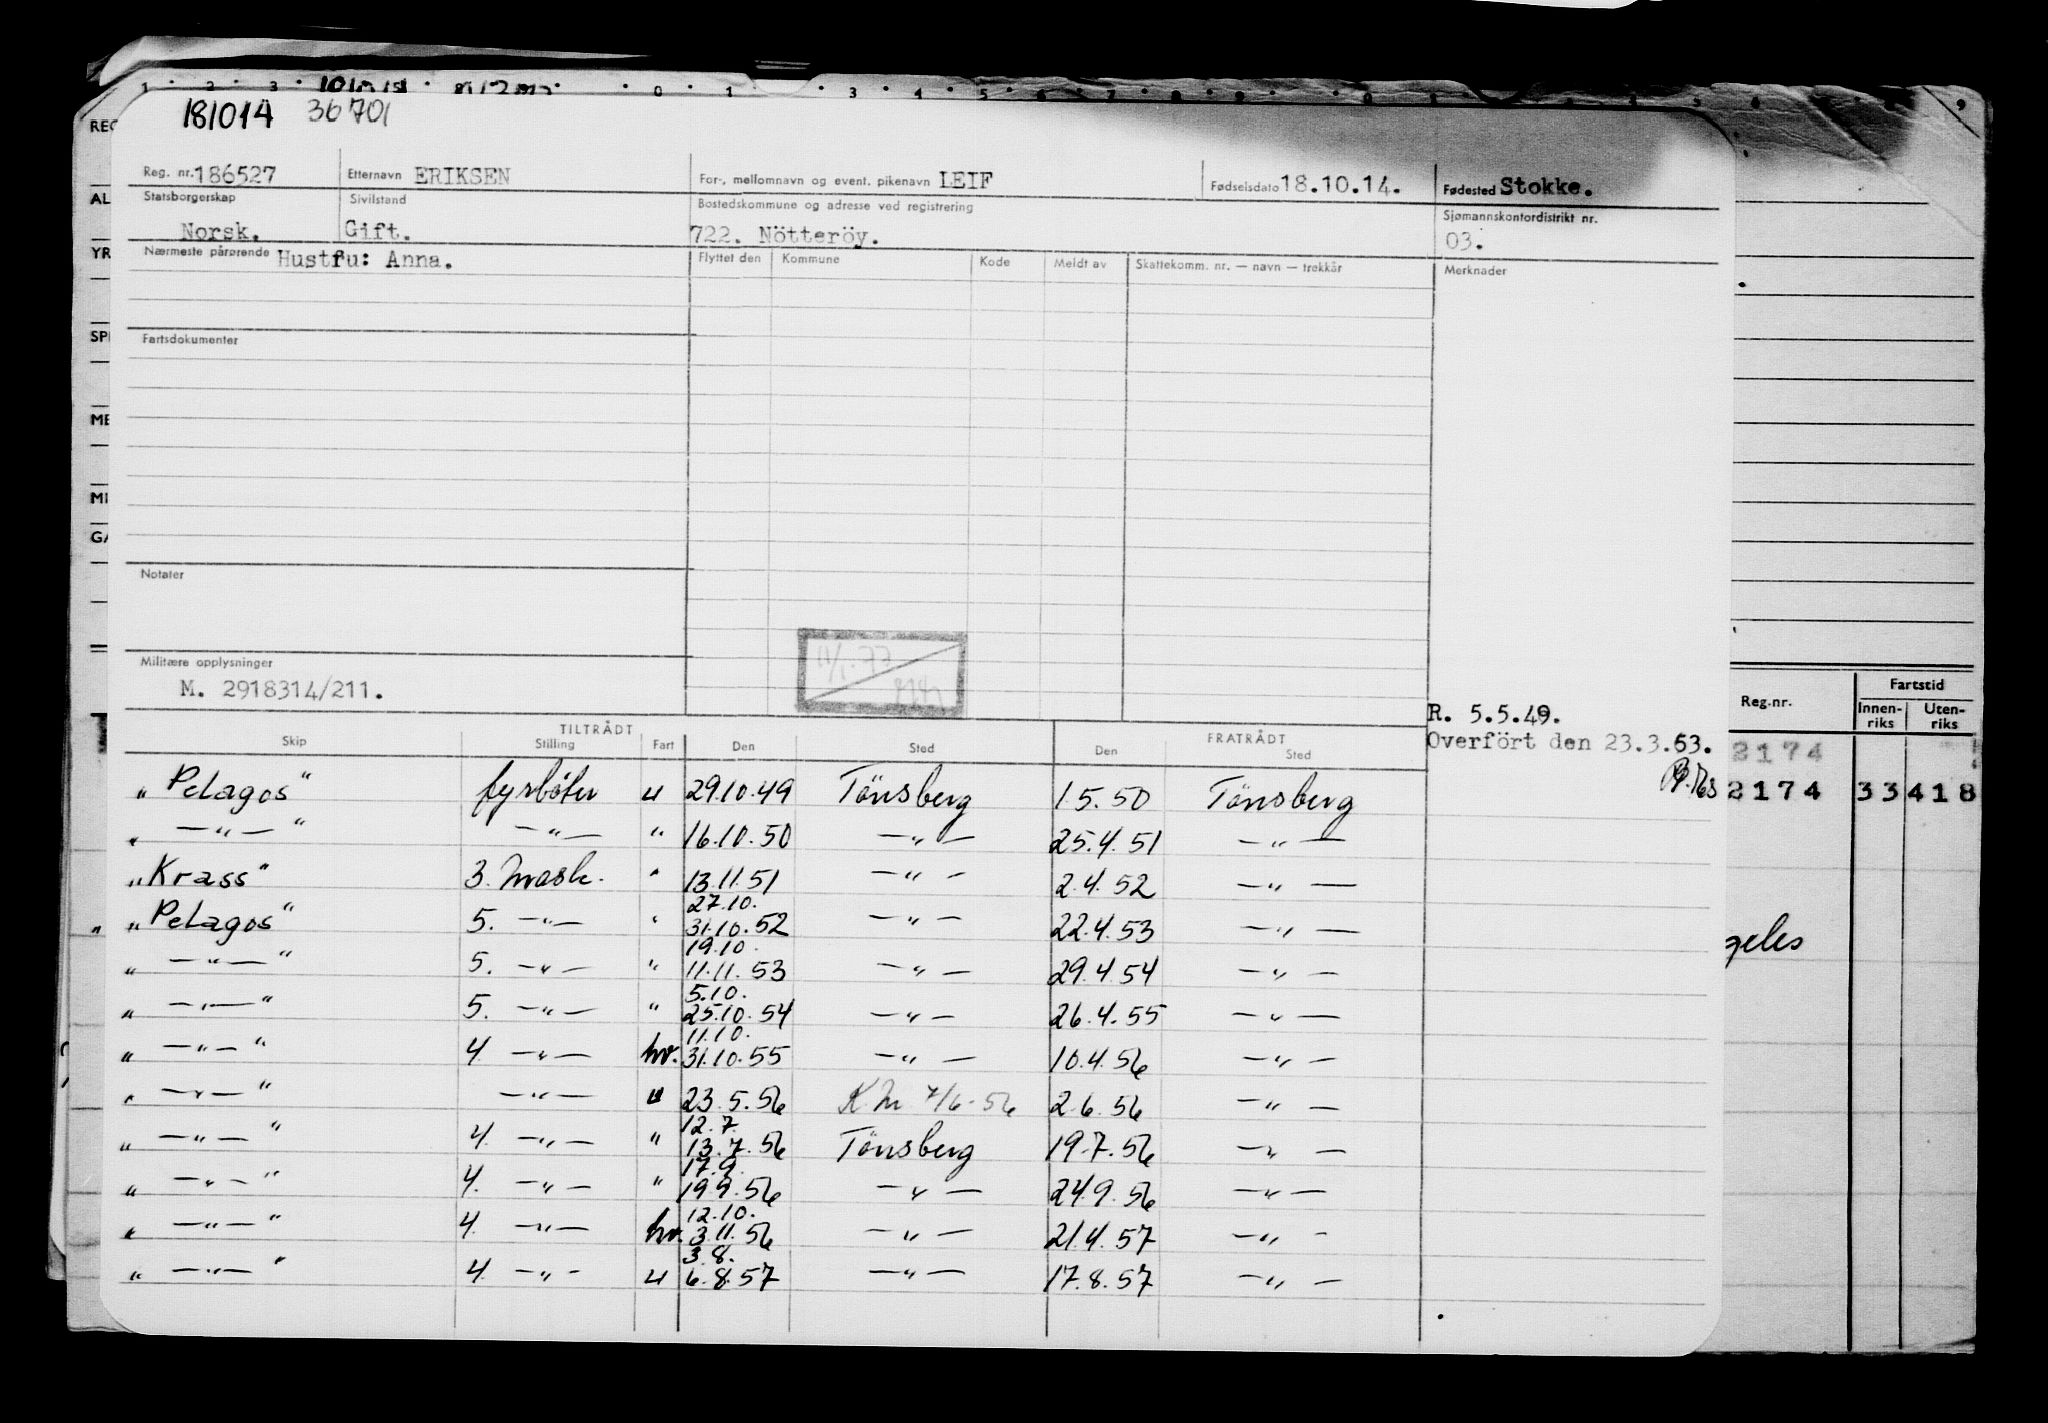 181014 36701
Reg. nr. 186527 Etternavn ERIKSEN For-, mellomnavn og event. pikenavn LEIF Fødselsdato 18.10.14. Fødested Stokke.
Statsborgerskap Sivilstand Bostedskommune og adresse ved registrering Sjømannskontordistrikt nr.
Norsk. Gift. 722. Nötteröy. 03.
Nærmeste pårørende Hustru: Anna. Flyttet den Kommune Kode Meldt av Skattekomm. nr. — navn — trekkår Merknader
Fartsdokumenter
Notater
Militære opplysninger
M. 2918314/211.
11/1-77
R. 5.5.49.
Overfört den 23.3.53.
TILTRÅDT FRATRÅDT
Skip Stilling Fart Den Sted Den Sted
„Pelagos" fyrbøter u 29.10.49 Tönsberg 1.5.50 Tönsberg
„ —„— " —„— " 16.10.50 —„— 25.4.51 —„—
„Krass" 3. mask. " 13.11.51 —„— 2.4.52 —„—
27.10.
„Pelagos" 5. —„— " 31.10.52 —„— 22.4.53 —„—
19.10.
„ —„— " 5. —„— " 11.11.53 —„— 29.4.54 —„—
5.10.
„ —„— " 5. —„— " 25.10.54 —„— 26.4.55 —„—
11.10.
„ —„— " 4. —„— hv. 31.10.55 —„— 10.4.56 —„—
„ —„— " —„— u 23.5.56 K.m. 7/6-56 2.6.56 —„—
12.7.
„ —„— " 4. —„— " 13.7.56 Tönsberg 19.7.56 —„—
17.9.
„ —„— " 4. —„— " 19.9.56 —„— 24.9.56 —„—
12.10.
„ —„— " 4. —„— hv. 3.11.56 —„— 21.4.57 —„—
3.8.
„ —„— " 4. —„— u 6.8.57 —„— 17.8.57 —„—
Reg.nr. Fartstid
Innen-riks Uten-riks
2174
2174 33 418